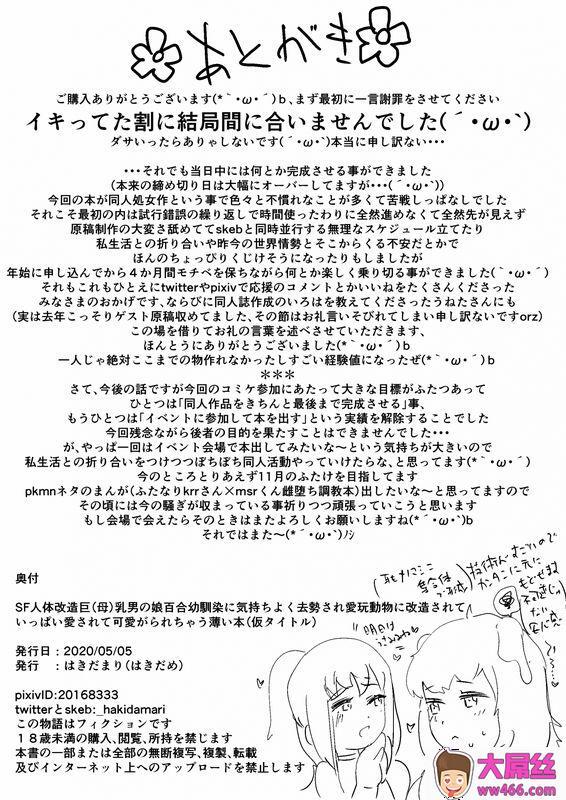 あとがき
ご購入ありがとうございます(*｀･ω･´)ｂ、まず最初に一言謝罪をさせてください
イキってた割に結局間に合いませんでした(´･ω･`)
ダサいったらありゃしないです(´･ω･`)本当に申し訳ない･･･
･･･それでも当日中には何とか完成させる事ができました
(本来の締め切り日は大幅にオーバーしてますが･･･(´･ω･`))
今回の本が同人処女作という事で色々と不慣れなことが多くて苦戦しっぱなしでした
それこそ最初の内は試行錯誤の繰り返しで時間使ったわりに全然進めなくて全然先が見えず
原稿制作の大変さ舐めててskebと同時並行する無理なスケジュール立てたり
私生活との折り合いや昨今の世界情勢とそこからくる不安だとかで
ほんのちょっぴりくじけそうになったりもしましたが
年始に申し込んでから４か月間モチベを保ちながら何とか楽しく乗り切る事ができました(｀･ω･´)
それもこれもひとえにtwitterやpixivで応援のコメントとかいいねをたくさんくださった
みなさまのおかげです、ならびに同人誌作成のいろはを教えてくださったうねたさんにも
(実は去年こっそりゲスト原稿収めてました、その節はお礼言いそびれてしまい申し訳ないですorz)
この場を借りてお礼の言葉を述べさせていただきます、
ほんとうにありがとうございました(*｀･ω･´)ｂ
一人じゃ絶対ここまでの物作れなかったしすごい経験値になったぜ(*｀･ω･´)ｂ
＊＊＊
さて、今後の話ですが今回のコミケ参加にあたって大きな目標がふたつあって
ひとつは｢同人作品をきちんと最後まで完成させる｣事、
もうひとつは｢イベントに参加して本を出す｣という実績を解除することでした
今回残念ながら後者の目的を果たすことはできませんでした･･･
が、やっぱ一回はイベント会場で本出してみたいな～という気持ちが大きいので
私生活との折り合いをつけつつぼちぼち同人活動やっていけたらな、と思ってます(*｀･ω･´)
今のところとりあえず11月のふたけを目指してます
pkmnネタのまんが(ふたなりkrrさん×msrくん雌堕ち調教本)出したいな～と思ってますので
その頃には今の騒ぎが収まっている事祈りつつ頑張っていこうと思います
もし会場で会えたらそのときはまたよろしくお願いしますね(*´･ω･`)b
それではまた～(*´･ω･`)ﾉｼ
奥付
SF人体改造巨(母)乳男の娘百合幼馴染に気持ちよく去勢され愛玩動物に改造されて
いっぱい愛されて可愛がられちゃう薄い本(仮タイトル)
発行日：2020/05/05
発行　：はきだまり(はきだめ)
pixivID:20168333
twitterとskeb:_hakidamari
この物語はフィクションです
１８歳未満の購入、閲覧、所持を禁じます
本書の一部または全部の無断複写、複製、転載
及びインターネット上へのアップロードを禁止します
大屌丝
ww466.com